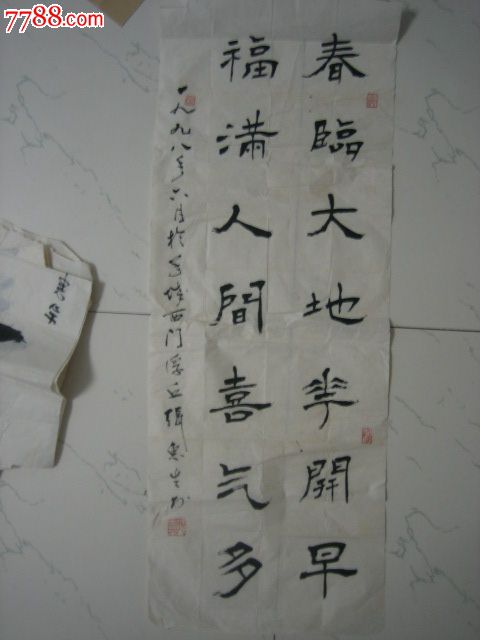 7788.com
春臨大地花開早
福满人間喜气多
一九九八年六月於
西门